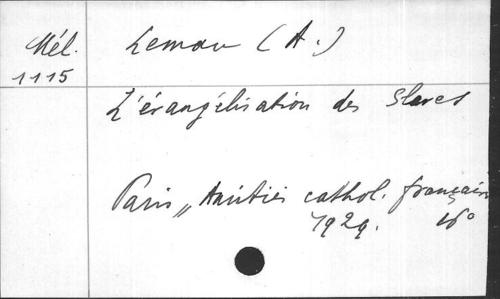 Mél.
1115
Leman (A.)
L'évangélisation des Slaves
Paris, Amitiés cathol. français
1929. 16°